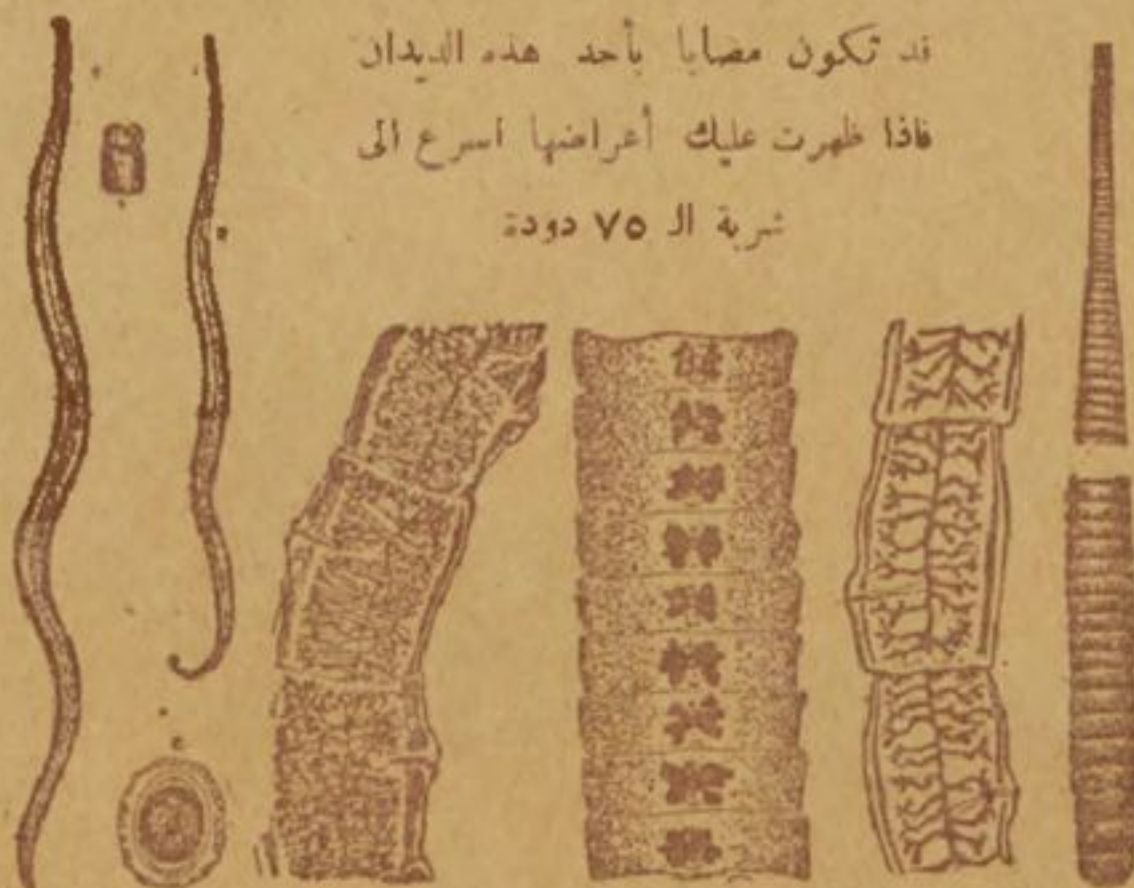 قد تكون مصابا بأحد هذه الديدان
فاذا ظهرت عليك أعراضها اسرع الى
شربة الـ ٧٥ دودة